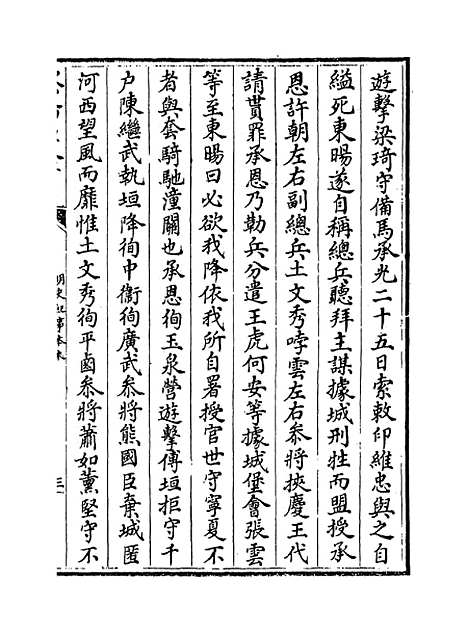 遊擊梁琦守備馬承光二十五日索敕印維忠與之自
縊死東暘遂自稱總兵聽拜主謀據城刑牲而盟授承
恩許朝左右副總兵土文秀哱雲左右叅將挾慶王代
請貰罪承恩乃勒兵分遣王虎何安等據城堡會張雲
等至東暘曰必欲我降依我所自署授官世守寧夏不
者與套騎馳潼關也承恩徇玉泉營遊擊傅垣拒守千
户陳繼武執垣降徇中衞徇廣武叅將熊國臣棄城匿
河西望風而靡惟土文秀徇平鹵叅將蕭如薰堅守不
明史紀事本末
三